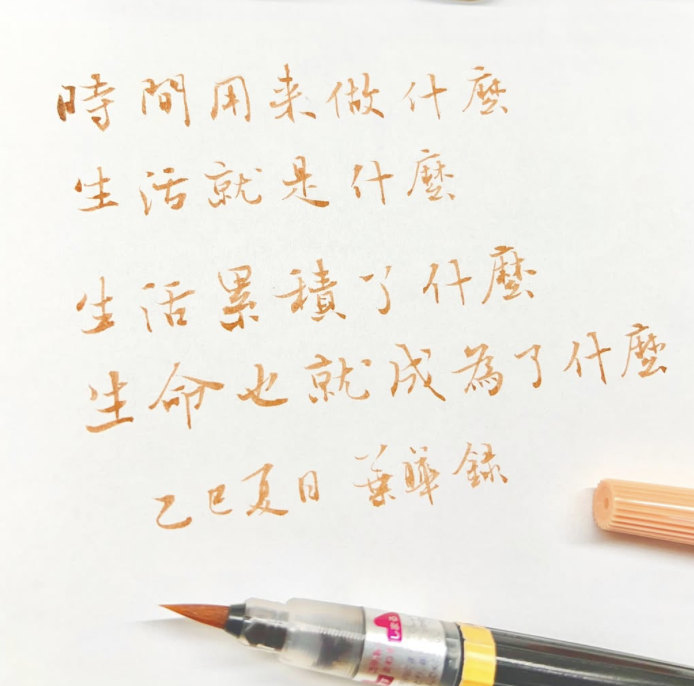 時間用来做什麼
生活就是什麼
生活累積了什麼
生命也就成為了什麼
乙巳夏日 葉曄録
しまる